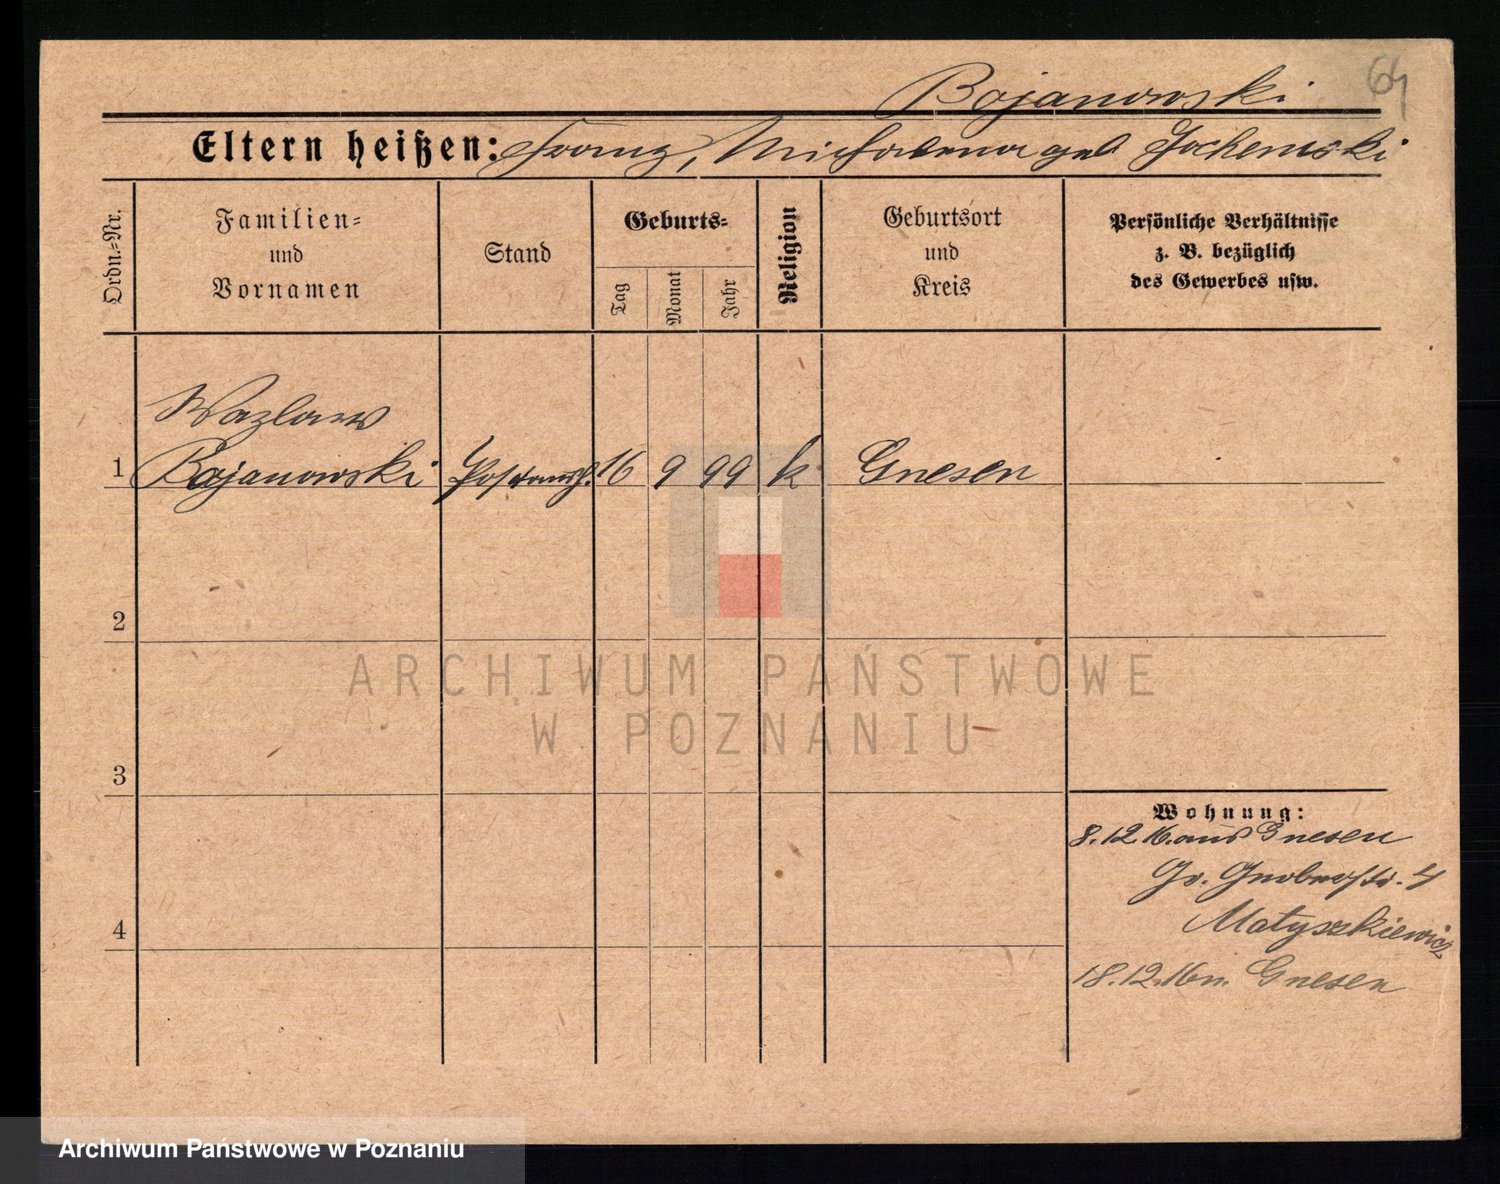 64
Bojanowski
Eltern heißen: Franz, Michalena geb Jochemski
Ordn.=Nr.
Familien=
und
Vornamen
Stand
Geburts=
Tag
Monat
Jahr
Religion
Geburtsort
und
Kreis
Persönliche Verhältnisse
z. B. bezüglich
des Gewerbes usw.
Wazlaw
1 Bojanowski 16 9 99 k Gnesen
2
3
4
Wohnung:
8.12.16. aus Gnesen
Gr. 4
Matyszkiewicz
18.12.16 n. Gnesen
ARCHIWUM PAŃSTWOWE
W POZNANIU
Archiwum Państwowe w Poznaniu